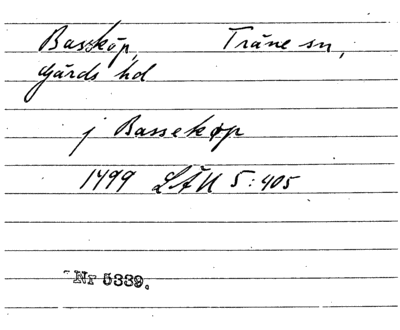 Basseköp, Träne sn,
Gärds hd
j Bassekøp
1499 LÄU 5:405
Nr 5339.